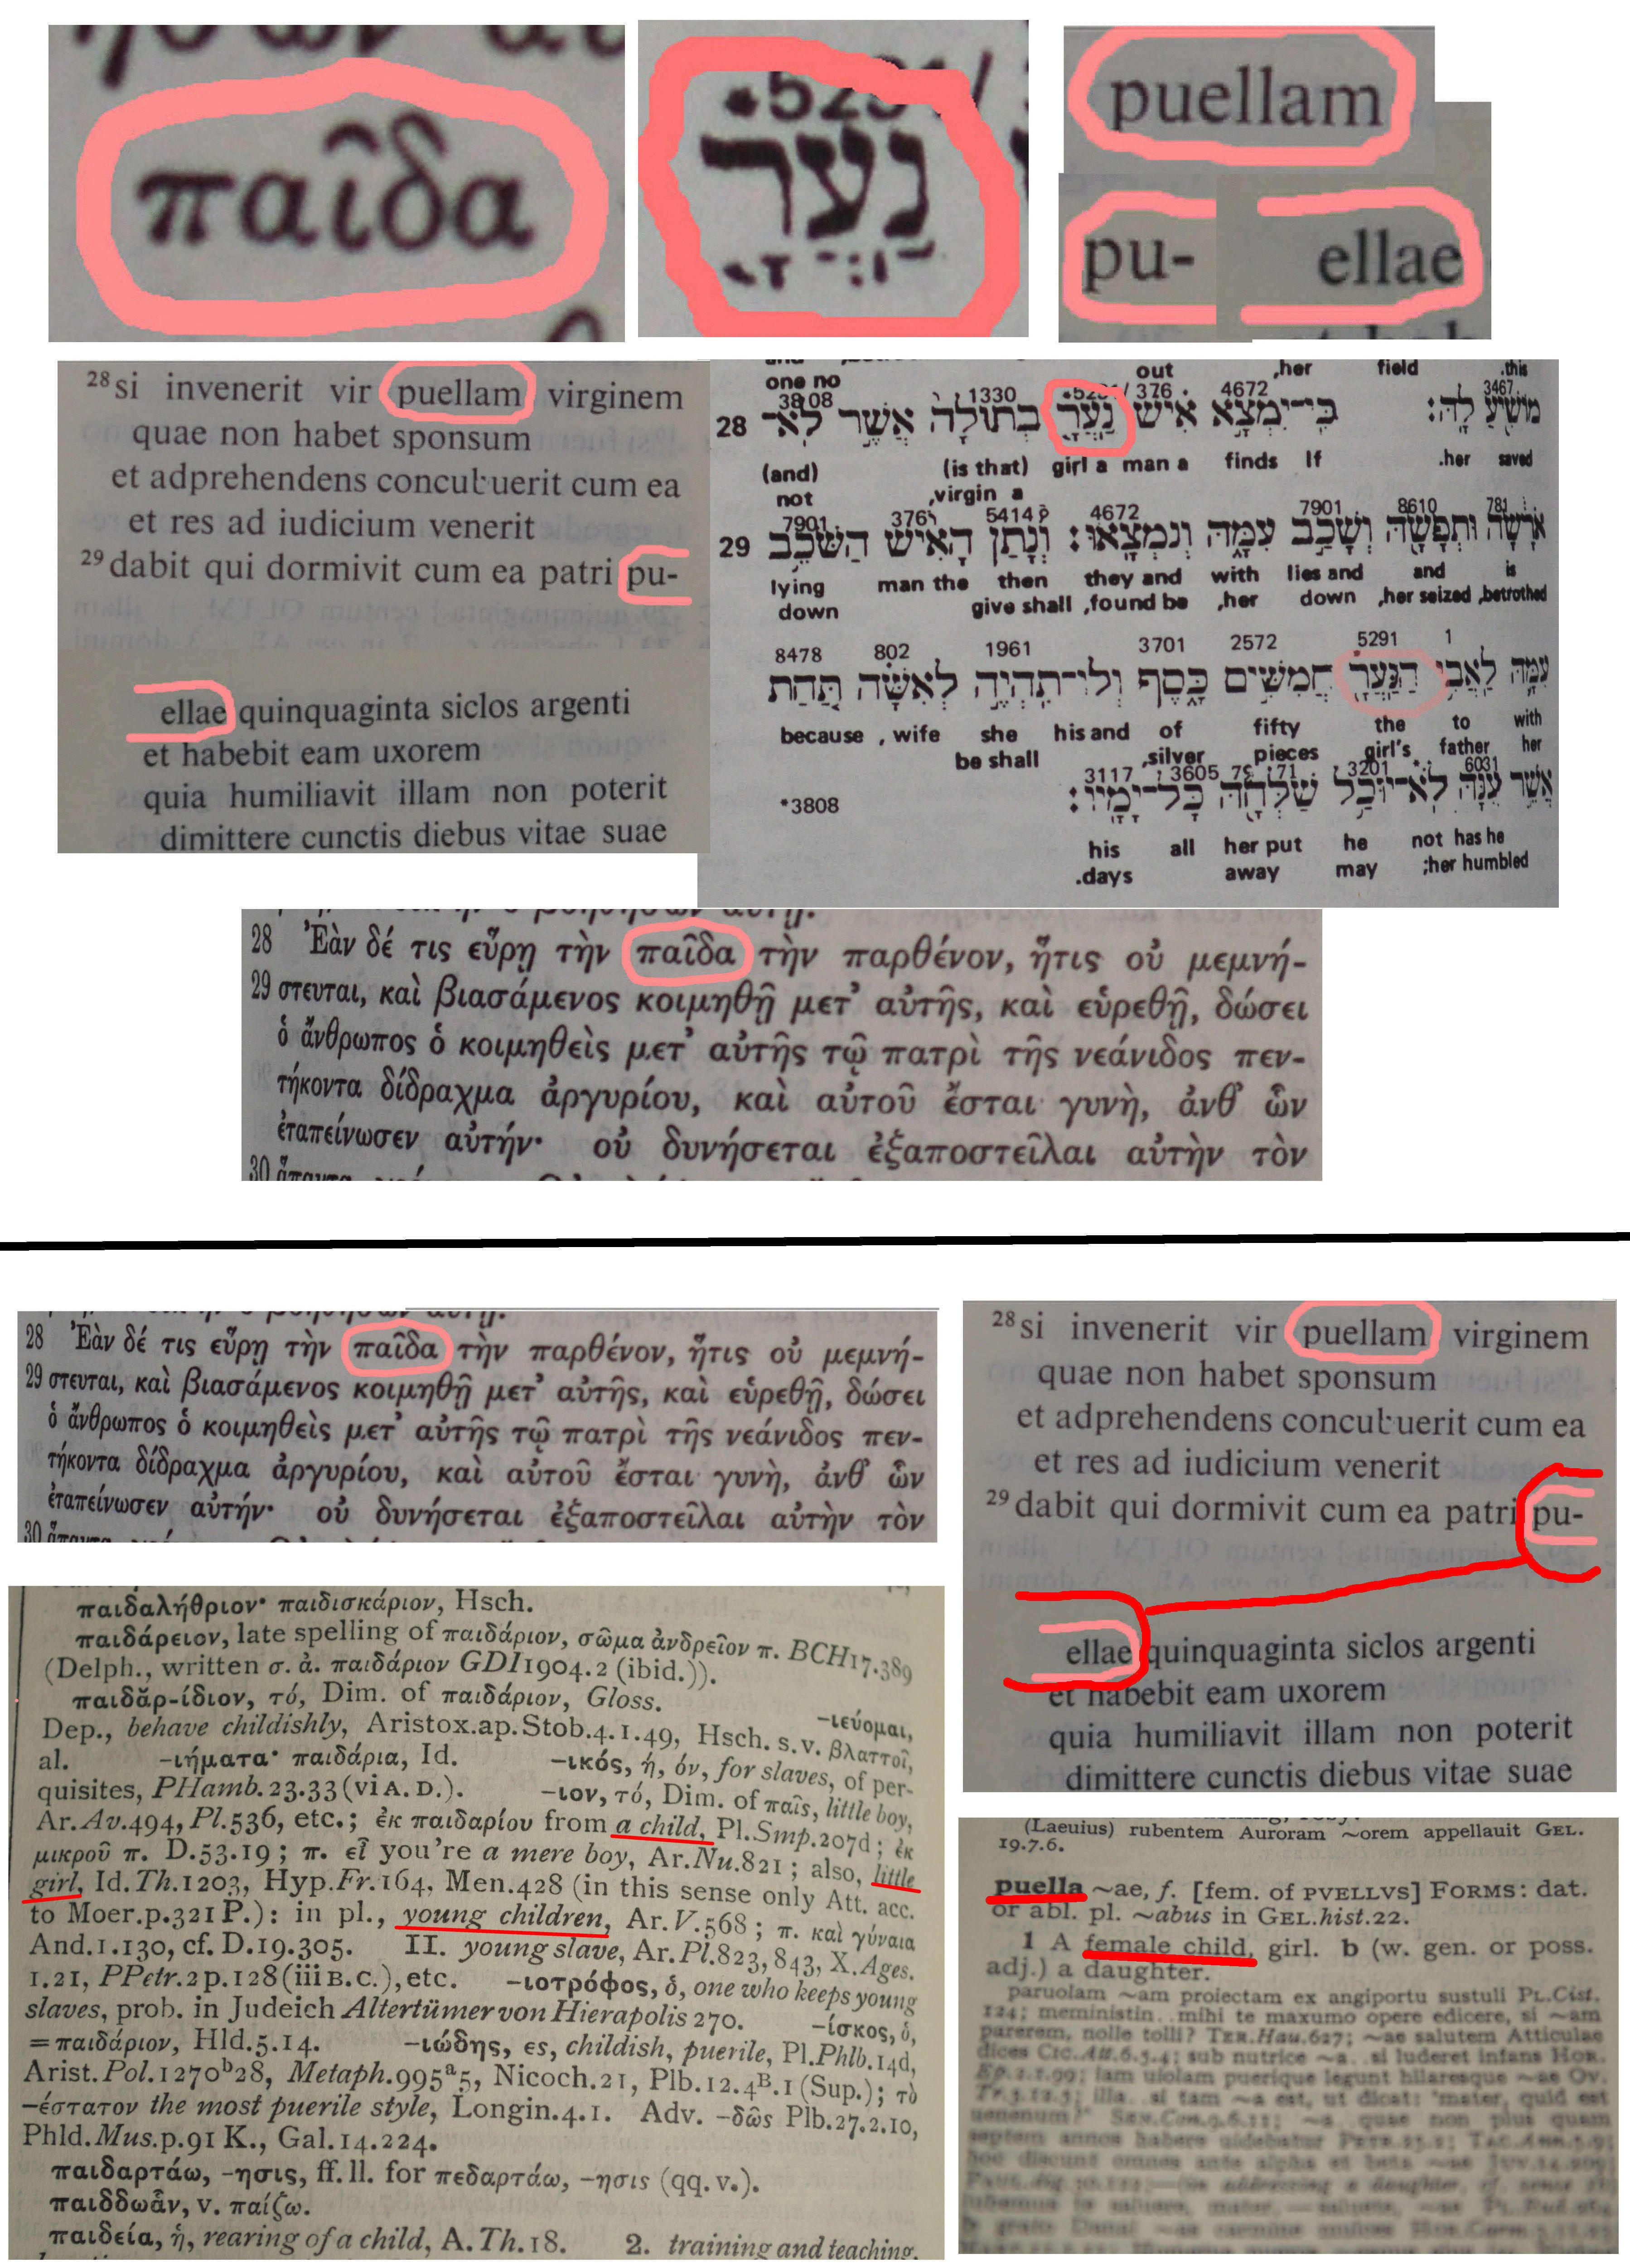 παῖδα
נַעֲרָ
puellam
pu-
ellae
28 si invenerit vir puellam virginem
quae non habet sponsum
et adprehendens concubuerit cum ea
et res ad iudicium venerit
29 dabit qui dormivit cum ea patri pu-
ellae quinquaginta siclos argenti
et habebit eam uxorem
quia humiliavit illam non poterit
dimittere cunctis diebus vitae suae
out ,her field .this
one no
3808 1330 376 4672 3467
28 מוֹשִׁיעַ לָהּ׃ כִּי־יִמְצָא אִישׁ נַעֲרָ בְתוּלָה אֲשֶׁר לֹא־
(and) (is that) girl a man a finds If .her saved
not ,virgin a
7901 376 5414 4672 7901 8610 781
29 אֹרָשָׂה וּתְפָשָׂהּ וְשָׁכַב עִמָּהּ וְנִמְצָאוּ׃ וְנָתַן הָאִישׁ הַשֹּׁכֵב
lying man the then they and with lies and and is
down give shall ,found be ,her down ,her seized ,betrothed
8478 802 1961 3701 2572 5291 1
עִמָּהּ לַאֲבִי הַנַּעֲרָ חֲמִשִּׁים כָּסֶף וְלוֹ־תִהְיֶה לְאִשָּׁה תַּחַת
because , wife she his and of fifty the to with
be shall ,silver pieces girl's father her
3117 3605 7971 3201 6031
*3808 אֲשֶׁר עִנָּהּ לֹא־יוּכַל שַׁלְּחָהּ כָּל־יָמָיו׃
his all her put he not has he
.days away may ;her humbled
28 Ἐὰν δέ τις εὕρῃ τὴν παῖδα τὴν παρθένον, ἥτις οὐ μεμνή-
29 στευται, καὶ βιασάμενος κοιμηθῇ μετ᾽ αὐτῆς, καὶ εὑρεθῇ, δώσει
ὁ ἄνθρωπος ὁ κοιμηθεὶς μετ᾽ αὐτῆς τῷ πατρὶ τῆς νεάνιδος πεν-
τήκοντα δίδραχμα ἀργυρίου, καὶ αὐτοῦ ἔσται γυνὴ, ἀνθ᾽ ὧν
ἐταπείνωσεν αὐτήν· οὐ δυνήσεται ἐξαποστεῖλαι αὐτὴν τὸν
30
28 Ἐὰν δέ τις εὕρῃ τὴν παῖδα τὴν παρθένον, ἥτις οὐ μεμνή-
29 στευται, καὶ βιασάμενος κοιμηθῇ μετ᾽ αὐτῆς, καὶ εὑρεθῇ, δώσει
ὁ ἄνθρωπος ὁ κοιμηθεὶς μετ᾽ αὐτῆς τῷ πατρὶ τῆς νεάνιδος πεν-
τήκοντα δίδραχμα ἀργυρίου, καὶ αὐτοῦ ἔσται γυνὴ, ἀνθ᾽ ὧν
ἐταπείνωσεν αὐτήν· οὐ δυνήσεται ἐξαποστεῖλαι αὐτὴν τὸν
30
28 si invenerit vir puellam virginem
quae non habet sponsum
et adprehendens concubuerit cum ea
et res ad iudicium venerit
29 dabit qui dormivit cum ea patri pu-
ellae quinquaginta siclos argenti
et habebit eam uxorem
quia humiliavit illam non poterit
dimittere cunctis diebus vitae suae
παιδαλήθριον· παιδισκάριον, Hsch.
παιδάρειον, late spelling of παιδάριον, σῶμα ἀνδρεῖον π. BCH17.389
(Delph., written σ. ἀ. παιδάριον GDI1904.2 (ibid.)).
παιδᾰρ-ίδιον, τό, Dim. of παιδάριον, Gloss. -ιεύομαι,
Dep., behave childishly, Aristox.ap.Stob.4.1.49, Hsch. s.v. βλαττοῖ,
al. -ιήματα· παιδάρια, Id. -ικός, ή, όν, for slaves, of per-
quisites, PHamb.23.33 (vi A.D.). -ιον, τό, Dim. of παῖς, little boy,
Ar.Av.494, Pl.536, etc.; ἐκ παιδαρίου from a child, Pl.Smp.207d; ἐκ
μικροῦ π. D.53.19; π. εἶ you're a mere boy, Ar.Nu.821; also, little
girl, Id.Th.1203, Hyp.Fr.164, Men.428 (in this sense only Att. acc.
to Moer.p.321 P.): in pl., young children, Ar.V.568; π. καὶ γύναια
And.1.130, cf. D.19.305. II. young slave, Ar.Pl.823, 843, X.Ages.
1.21, PPetr.2p.128 (iii B.C.), etc. -ιοτρόφος, ὁ, one who keeps young
slaves, prob. in Judeich Altertümer von Hierapolis 270. -ίσκος, ὁ,
= παιδάριον, Hld.5.14. -ιώδης, ες, childish, puerile, Pl.Phlb.14d,
Arist.Pol.1270b28, Metaph.995a5, Nicoch.21, Plb.12.4B.1 (Sup.); τὸ
-έστατον the most puerile style, Longin.4.1. Adv. -δῶς Plb.27.2.10,
Phld.Mus.p.91 K., Gal.14.224.
παιδαρτάω, -ησις, ff. ll. for πεδαρτάω, -ησις (qq. v.).
παιδδωἇν, v. παίζω.
παιδεία, ἡ, rearing of a child, A.Th.18. 2. training and teaching,
(Laeuius) rubentem Auroram ~orem appellauit GEL.
19.7.6.
puella ~ae, f. [fem. of PVELLVS] FORMS: dat.
or abl. pl. ~abus in GEL.hist.22.
1 A female child, girl. b (w. gen. or poss.
adj.) a daughter.
paruolam ~am proiectam ex angiportu sustuli PL.Cist.
124; meministin.. mihi te maxumo opere edicere, si ~am
parerem, nolle tolli? TER.Hau.627; ~ae salutem Atticulae
dices CIC.Att.6.5.4; sub nutrice ~a.. si luderet infans HOR.